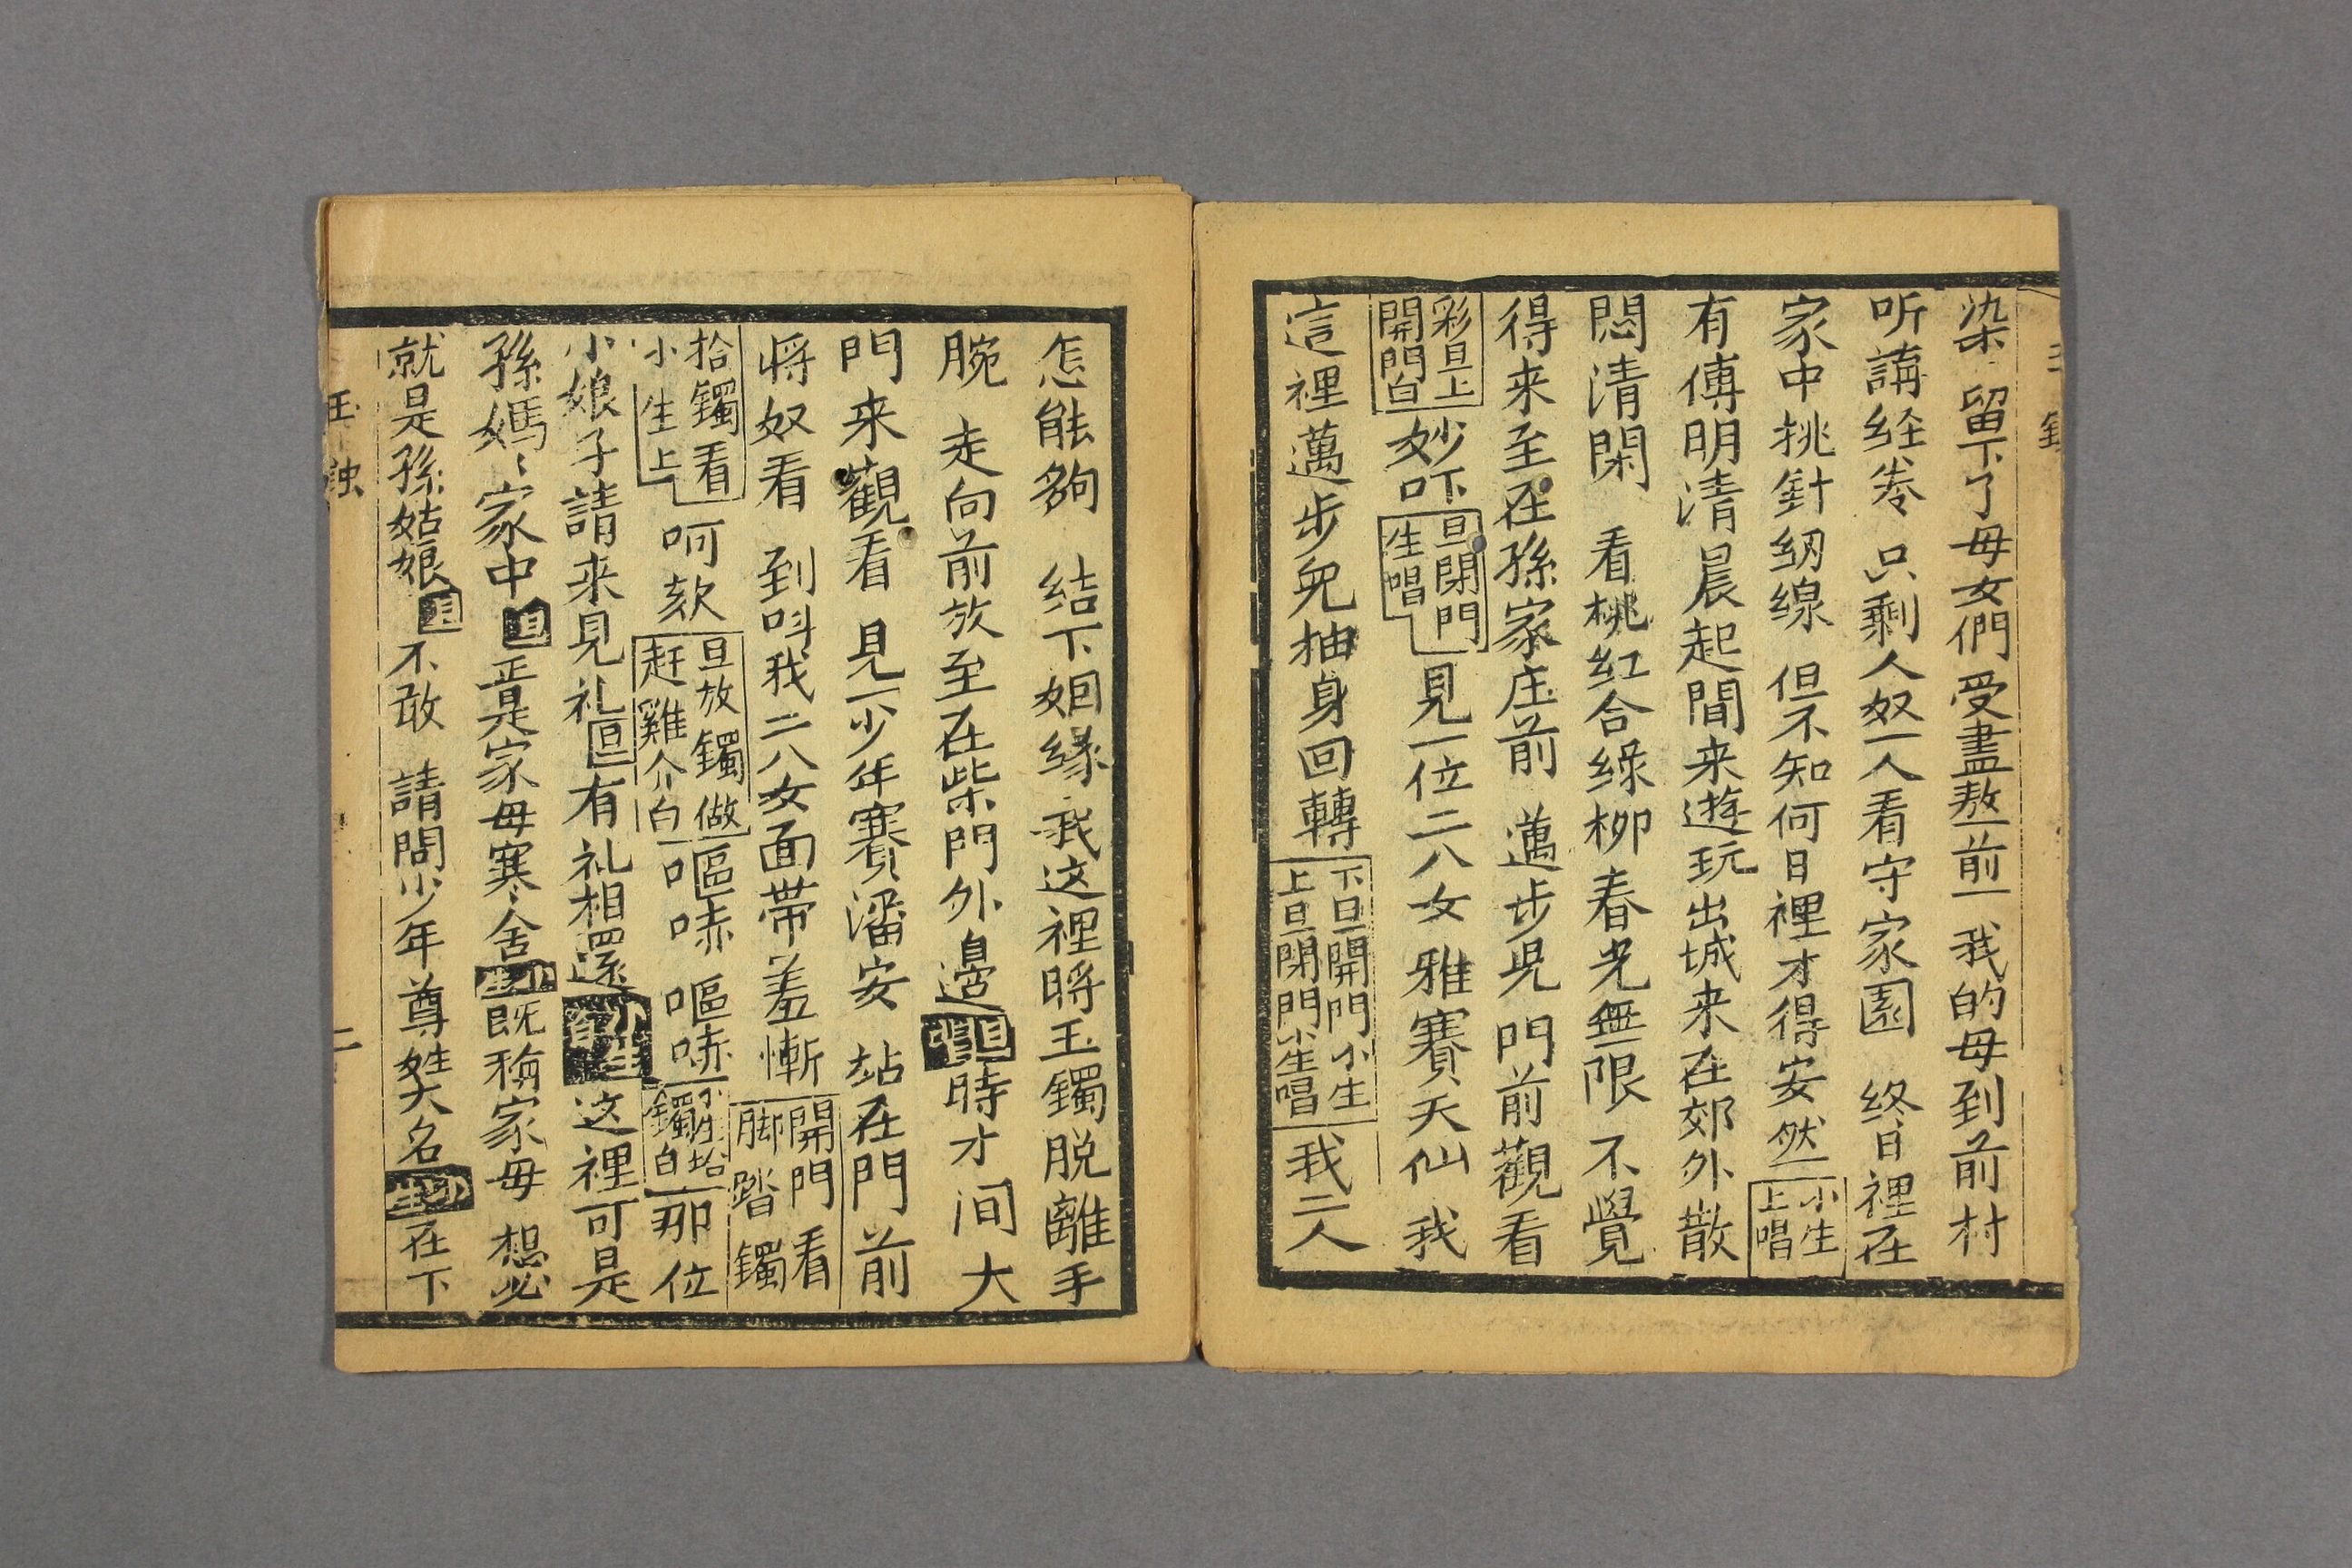 染留下了母女們受盡熬煎我的母到前村
听講經卷只剩人奴一人看守家園終日裡在
家中挑針纫線但不知何日裡才得安然小生上唱
有傅明清晨起間来遊玩出城来在郊外散
悶清閑看桃紅合綠柳春光無限不覺
得来至在孫家庄前邁步兒門前觀看
彩旦上開門白妙吓旦閉門生唱見一位二八女雅賽天仙我
這裡邁步兒抽身回轉下旦開門小生上旦閉門小生唱我二人
怎能夠結下姻緣我这裡將玉鐲脫離手
腕走向前放至在柴門外邊旦唱時才间大
門来觀看見一少年賽潘安站在門前
将奴看到叫我二八女面帶羞慚開門看脚踏鐲
拾鐲看小生上呵欬旦放鐲做赶雞介白嘔哧嘔哧小生拾鐲白那位
小娘子請来見礼旦有礼相還小生白这裡可是
孫媽〻家中旦正是家母寒舍小生既稱家母想必
就是孫姑娘旦不敢請問少年尊姓大名小生在下
玉
二